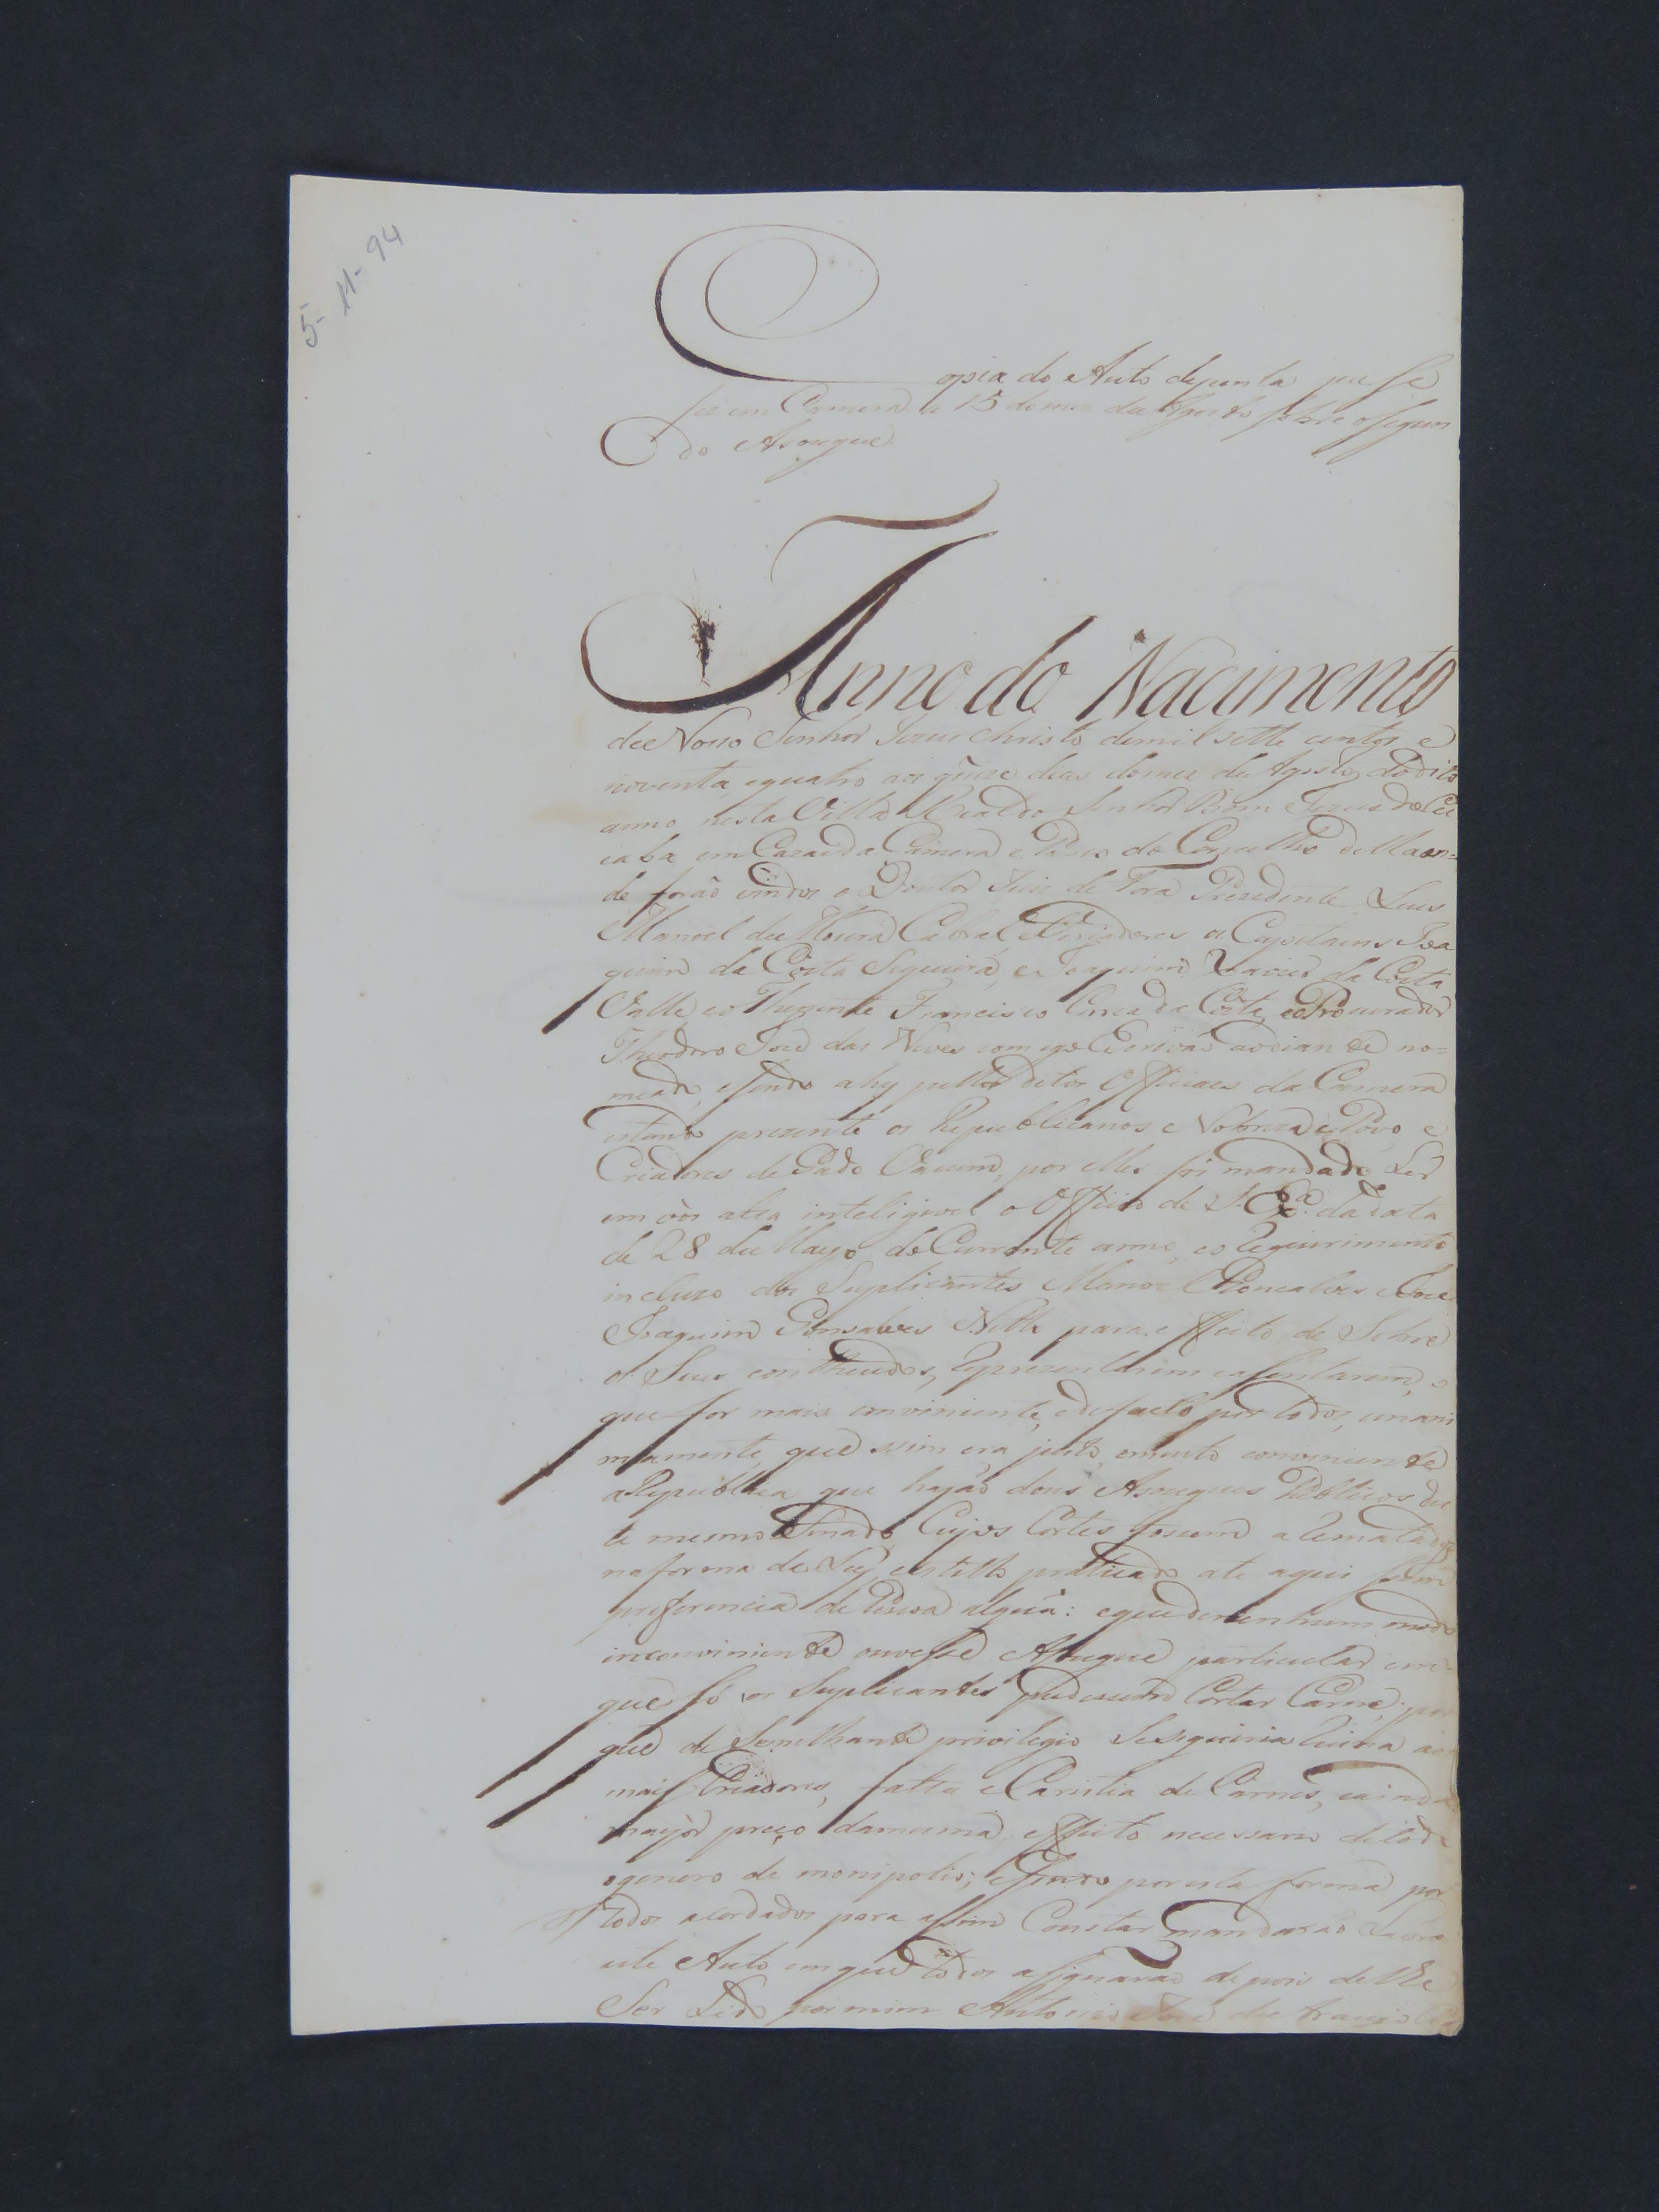 5-11-94
Copia do Auto dejunta que se
fez em Camera a 15 domes de Agosto sobre osegun
do Asougue
Anno do Nacimento
de Nosso Senhor Jezus Christo demil sette centos e
noventa, equatro aos quinze dias domez de Agosto do dito
anno nesta Villa Real do Senhor Bom Jezus do Cu
iaba em Cazas da Camera e Paços do Conselho della on=
de forão vindos o Doutor Juiz de Fora Prezidente Luis
Manoel de Moura Cabral e Vereadores os Capitaens Joa
quim da Costa Sequeira, e Joaquim Xavier da Costa
Valle eo Thezente Francisco Correa da Costa, eo Procurador
Theodoro José das Neves comigo Escrivão aodiante no=
meado, esendo ahy pellos ditos Officiaes da Camera
estando prezente os Republicanos e Nobreza e Povo, e
Criadores de Gado Vacum, por elles foi mandado Ler
em vòs alta inteligivel o Officio de S. Exª. da data
de 28 de Mayo do Currente anno, eo Requirimento
incluzo dos Suplicantes Manoel Goncalves e José
Joaquim Gonsalves Netto para effeito de Sobre
os Seus contheudos, Reprezentarem easentarem, o
que for mais conviniente, edefacto por todos, unani
mamente, que assim era justo, emuito conviniente
a Republica que hajão dous Asougues Publicos des
te mesmo Senado, Cujos Cortes fossem a Rematados
naforma da Ley, e estillo praticado ate aqui sem
preferencia de Pesoa algúa: eque denenhum modo
inconviniente ouvesse Asougue particular em=
que só os Suplicantes pudessem Cortar Carne; por
que de Semilhante privilegio Seseguiria Ruina aos
mais Criadores, falta e Caristia de Carnes, eainda
mayòr preço damesma, effeito necessario detodo
ogenero de monipolio; esendo poresta forma por
todos acordados para assim Constar mandarão Lavrar
este Auto emque todos asignarão depois delhe
Ser Lido por mim Antonio José de Araujo